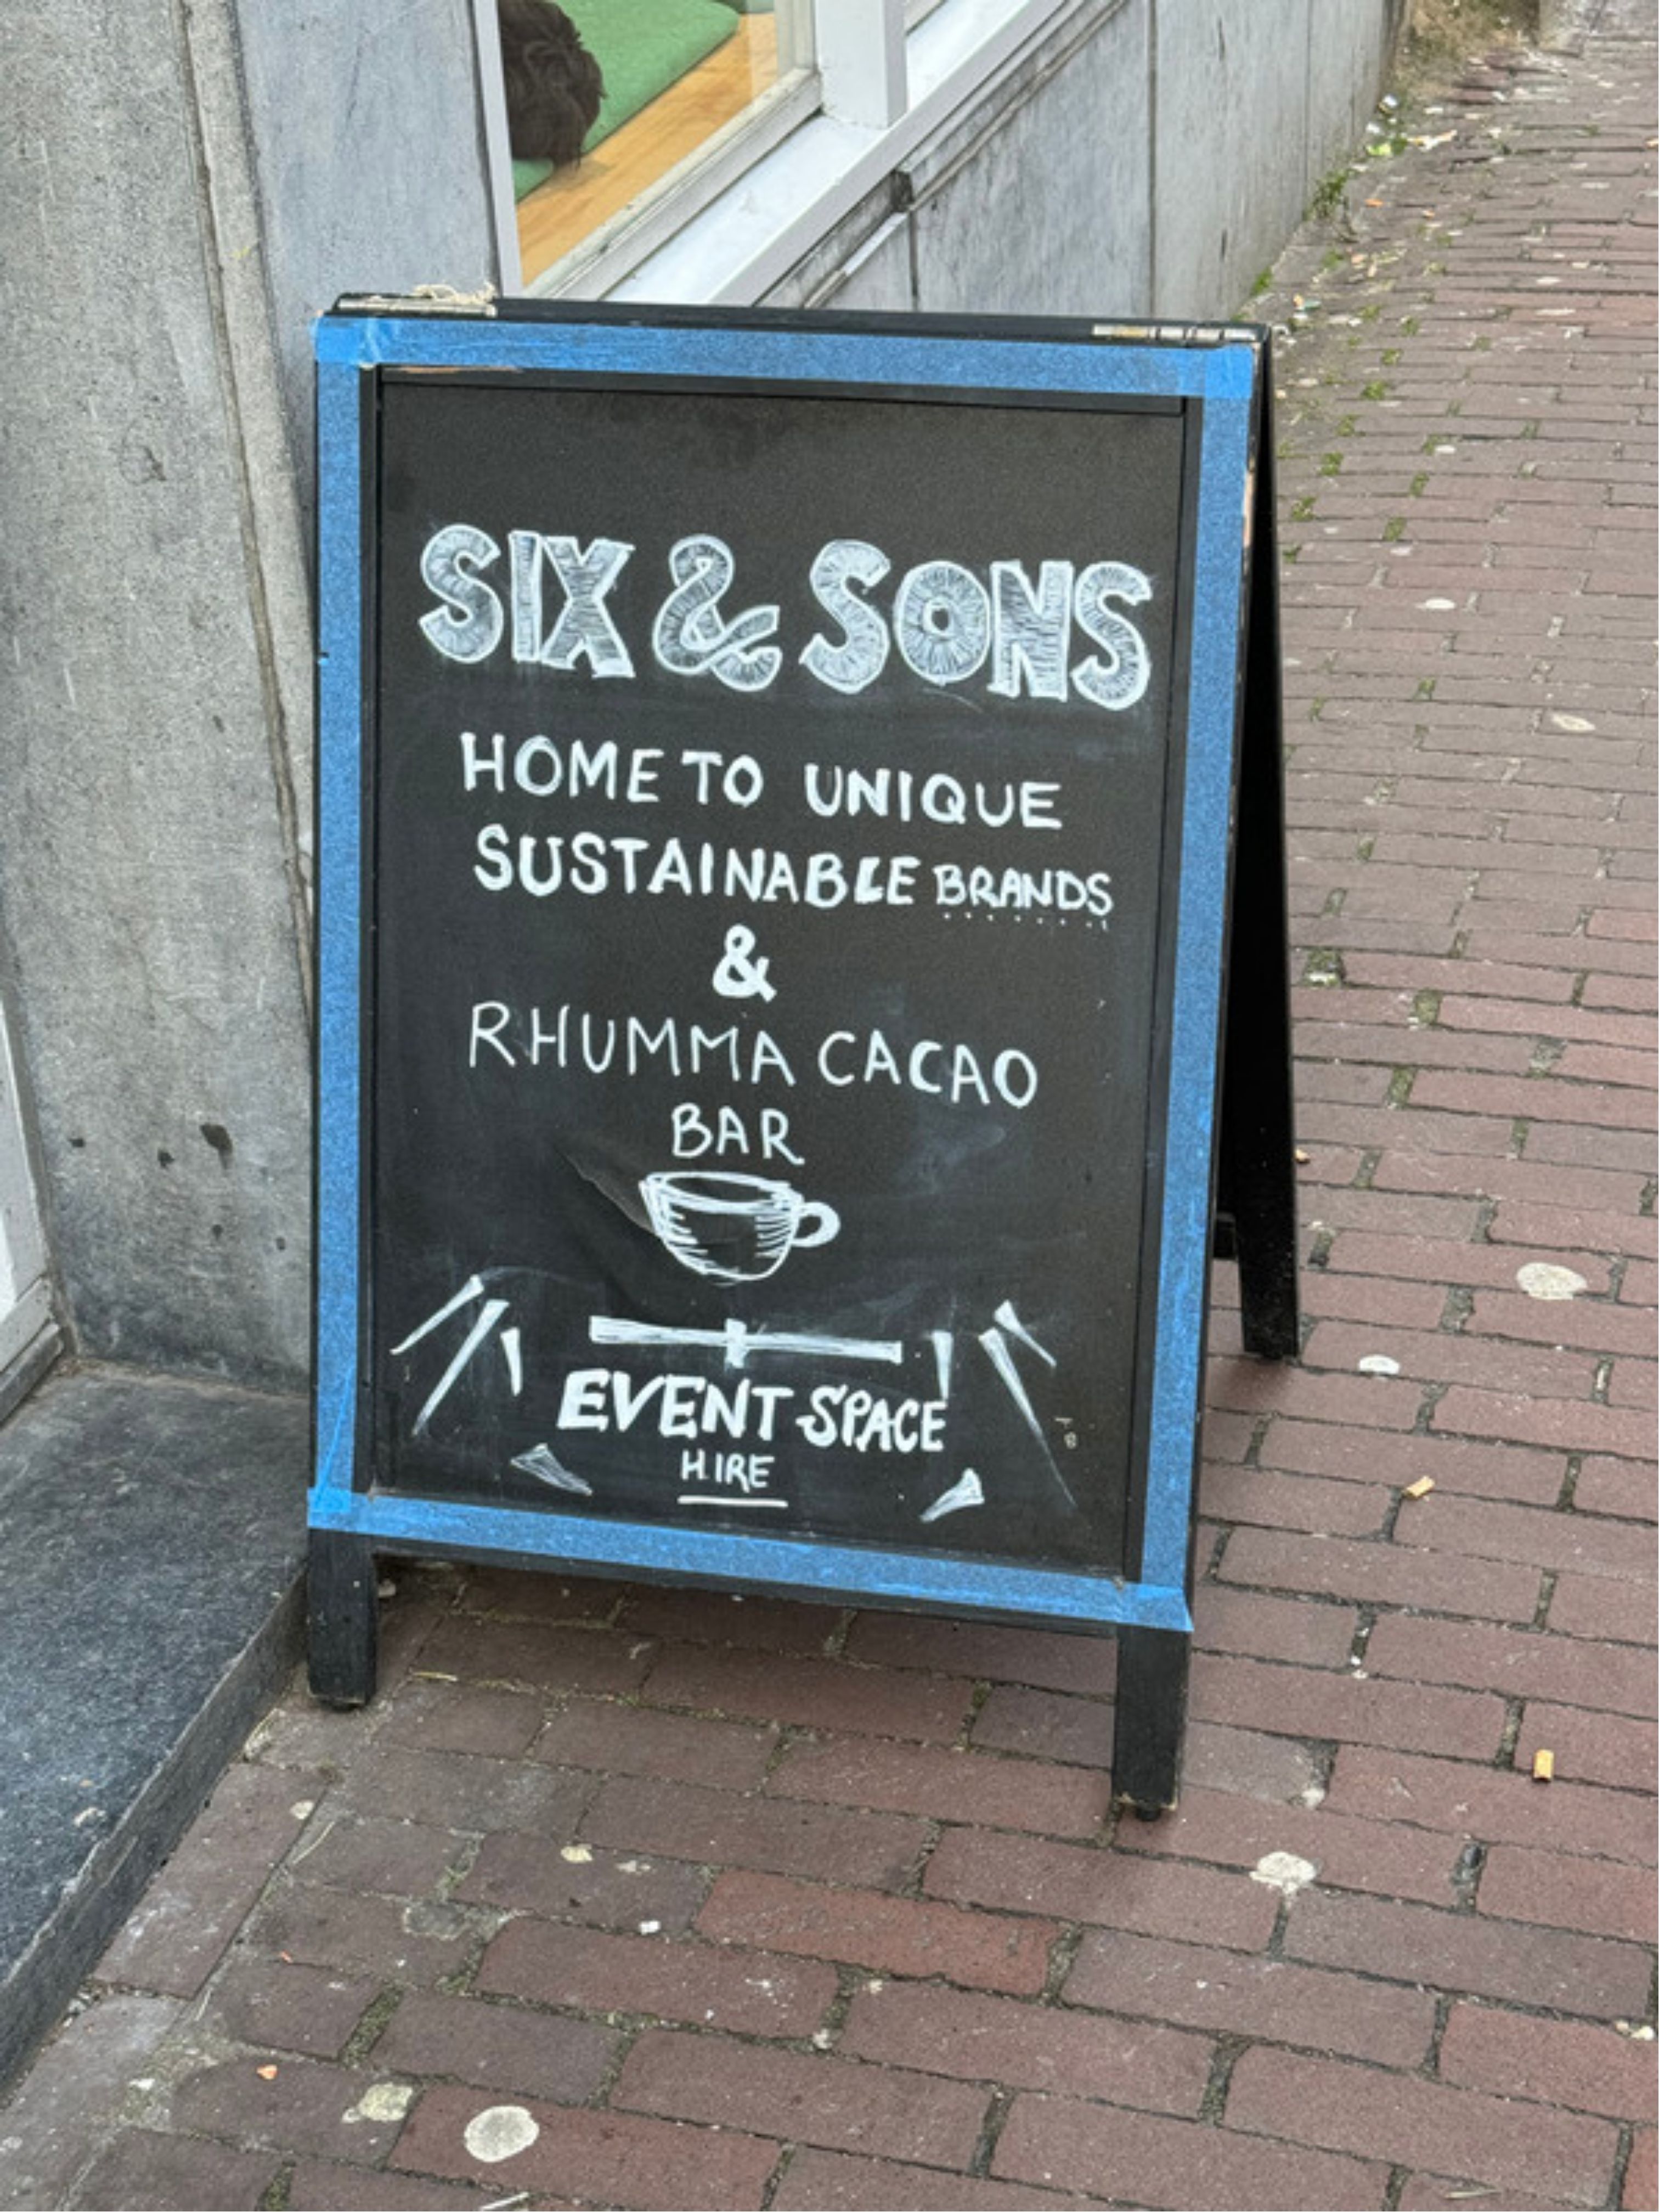 SIX & SONS
HOME TO UNIQUE
SUSTAINABLE BRANDS
&
RHUMMA CACAO
BAR
EVENT SPACE
HIRE